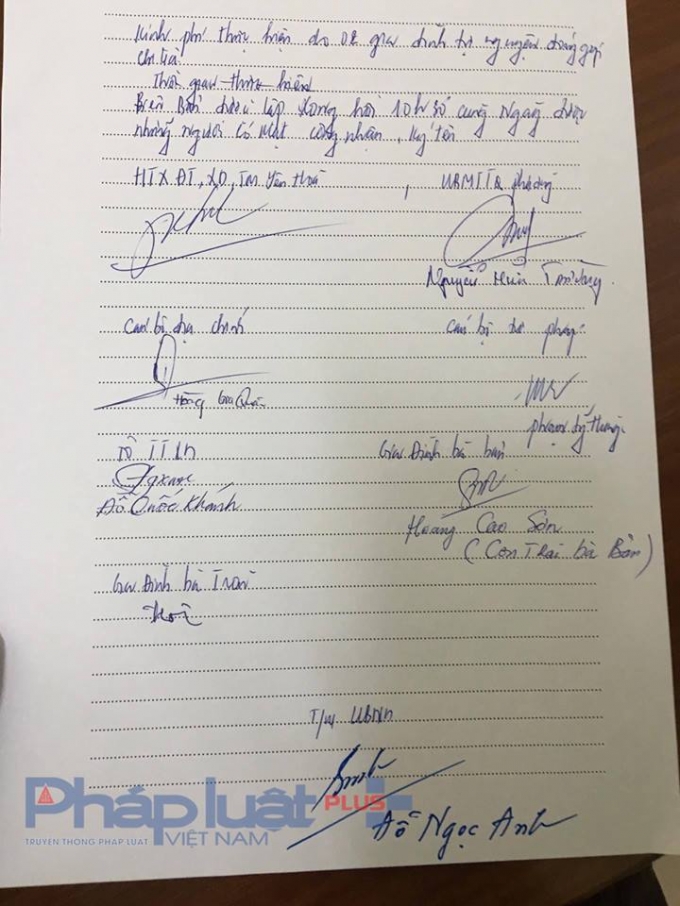 Kinh phí thực hiện do 02 gia đình tự nguyện đóng góp
chi trả
Thời gian thực hiện
Biên Bản được lập xong hồi 10h số cùng Ngày được
những người có mặt công nhận, ký tên
HTX ĐT, XD, TM Yên Thái, UBMTTQ phường
Nguyễn Hữu
Cán bộ địa chính
Cán bộ
Hoàng Gia
Phạm
Tổ
Gia Đình bà bản
Đỗ Quốc Khánh
Hoàng Cao Sơn
(Con Trai bà Bản)
Gia Đình bà
T/M UBND
Đỗ Ngọc Anh
Pháp luật PLUS
VIỆT NAM
TRUYỀN THÔNG PHÁP LUẬT